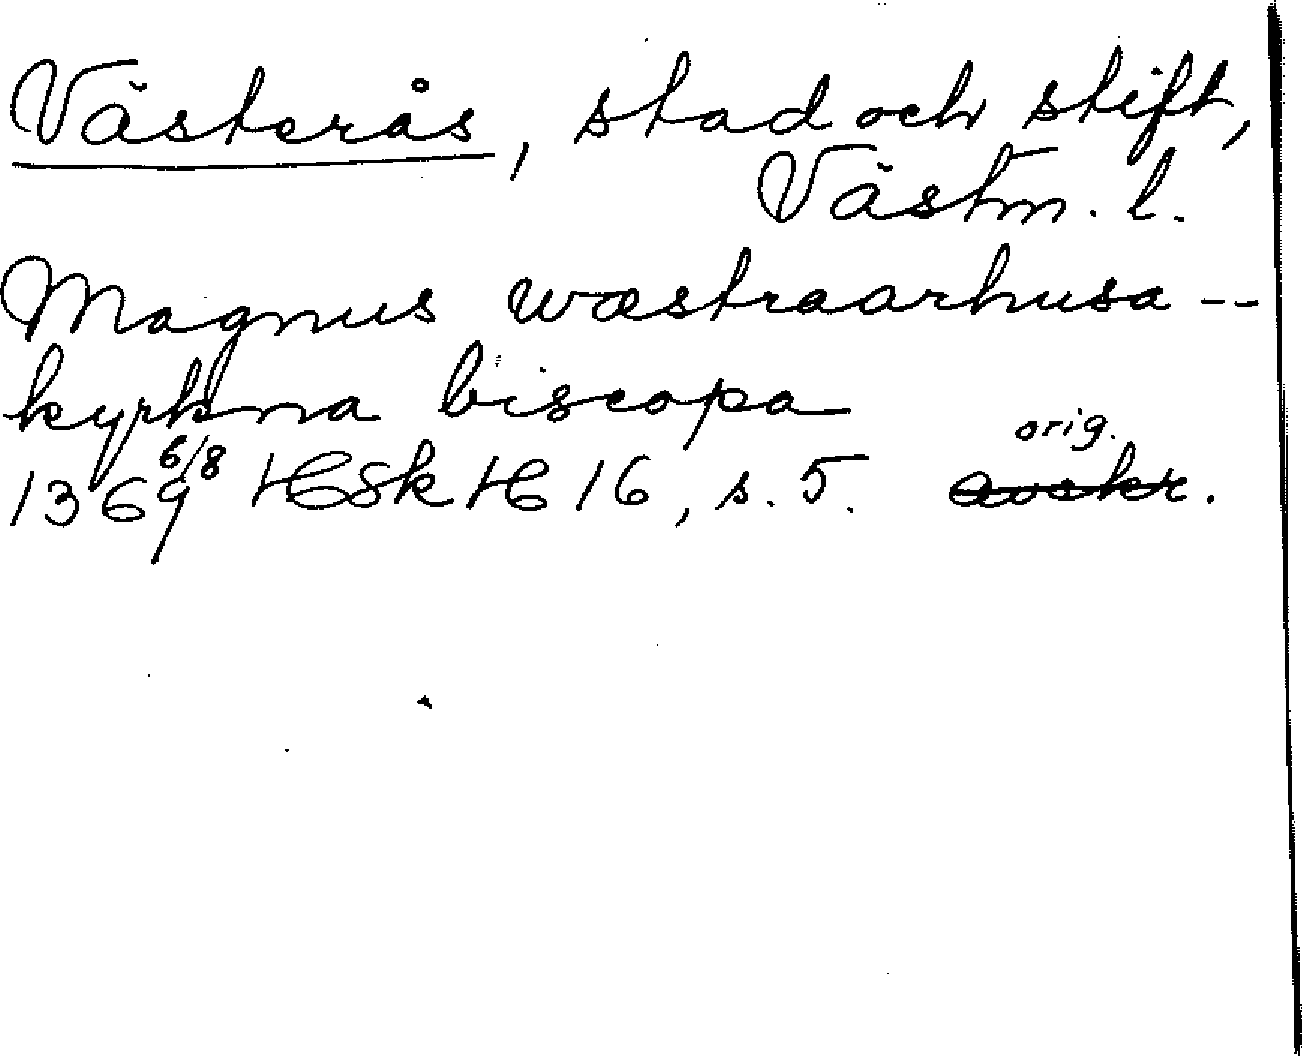 Västerås, stad och stift,
Västm. l.
Magnus wæstraarhusa --
kyrkna biscopa
1369 6/8 HSkH 16, s. 5. orig. avskr.